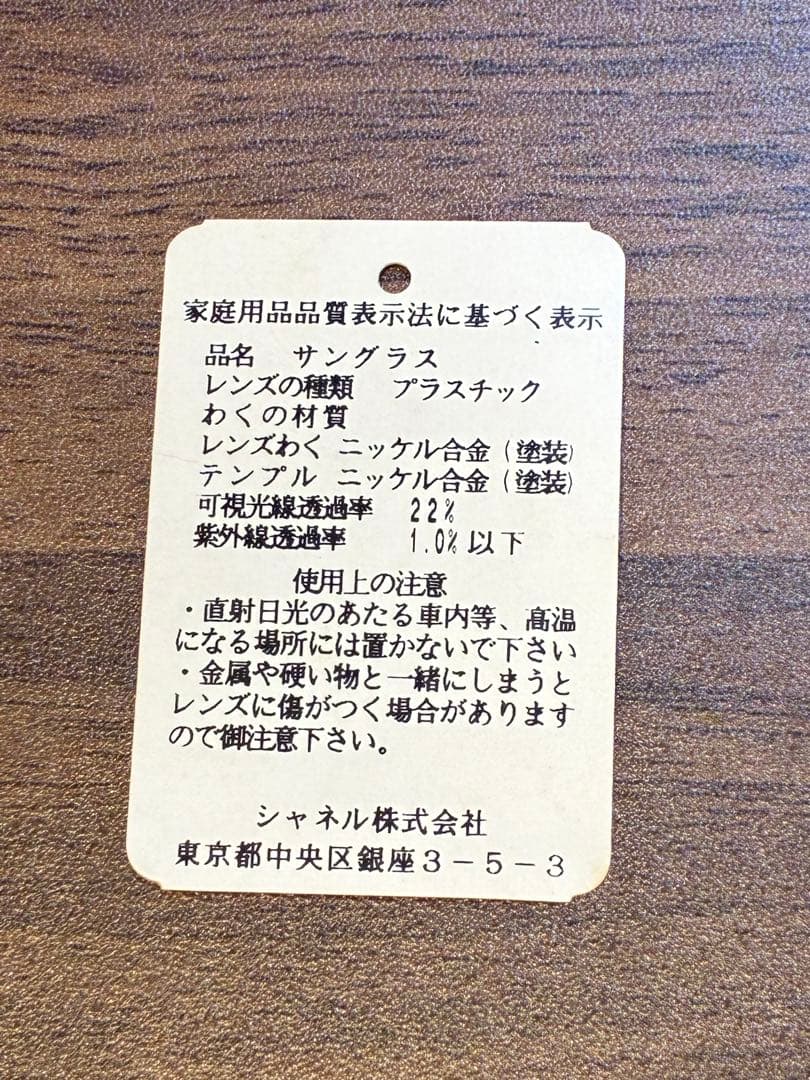 家庭用品品質表示法に基づく表示
品名　サングラス
レンズの種類　プラスチック
わくの材質
レンズわく ニッケル合金（塗装）
テンプル ニッケル合金（塗装）
可視光線透過率　22%
紫外線透過率　1.0%以下
使用上の注意
・直射日光のあたる車内等、高温
になる場所には置かないで下さい
・金属や硬い物と一緒にしまうと
レンズに傷がつく場合があります
ので御注意下さい。
シャネル株式会社
東京都中央区銀座３－５－３